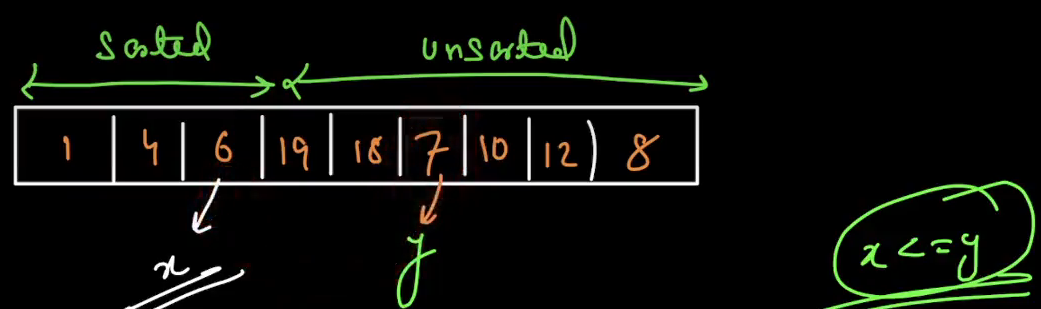 sorted unsorted
1 4 6 19 18 7 10 12 8
x y
x <= y